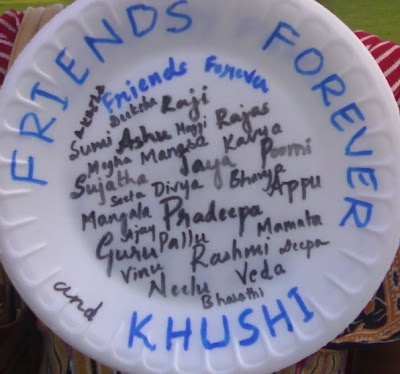 FRIENDS FOREVER
Friends Forever
Deeksha Raji
Sumi Ashu Maggi Rajas
Megha Mangla Kavya
Sujatha Jaya Poorni
Seeta Divya Bhavya
Mangala Pradeepa Appu
Ajay
Guru Pallu Mamata
Vinu Rashmi Deepa
Neelu Veda
Bharathi
and
KHUSHI